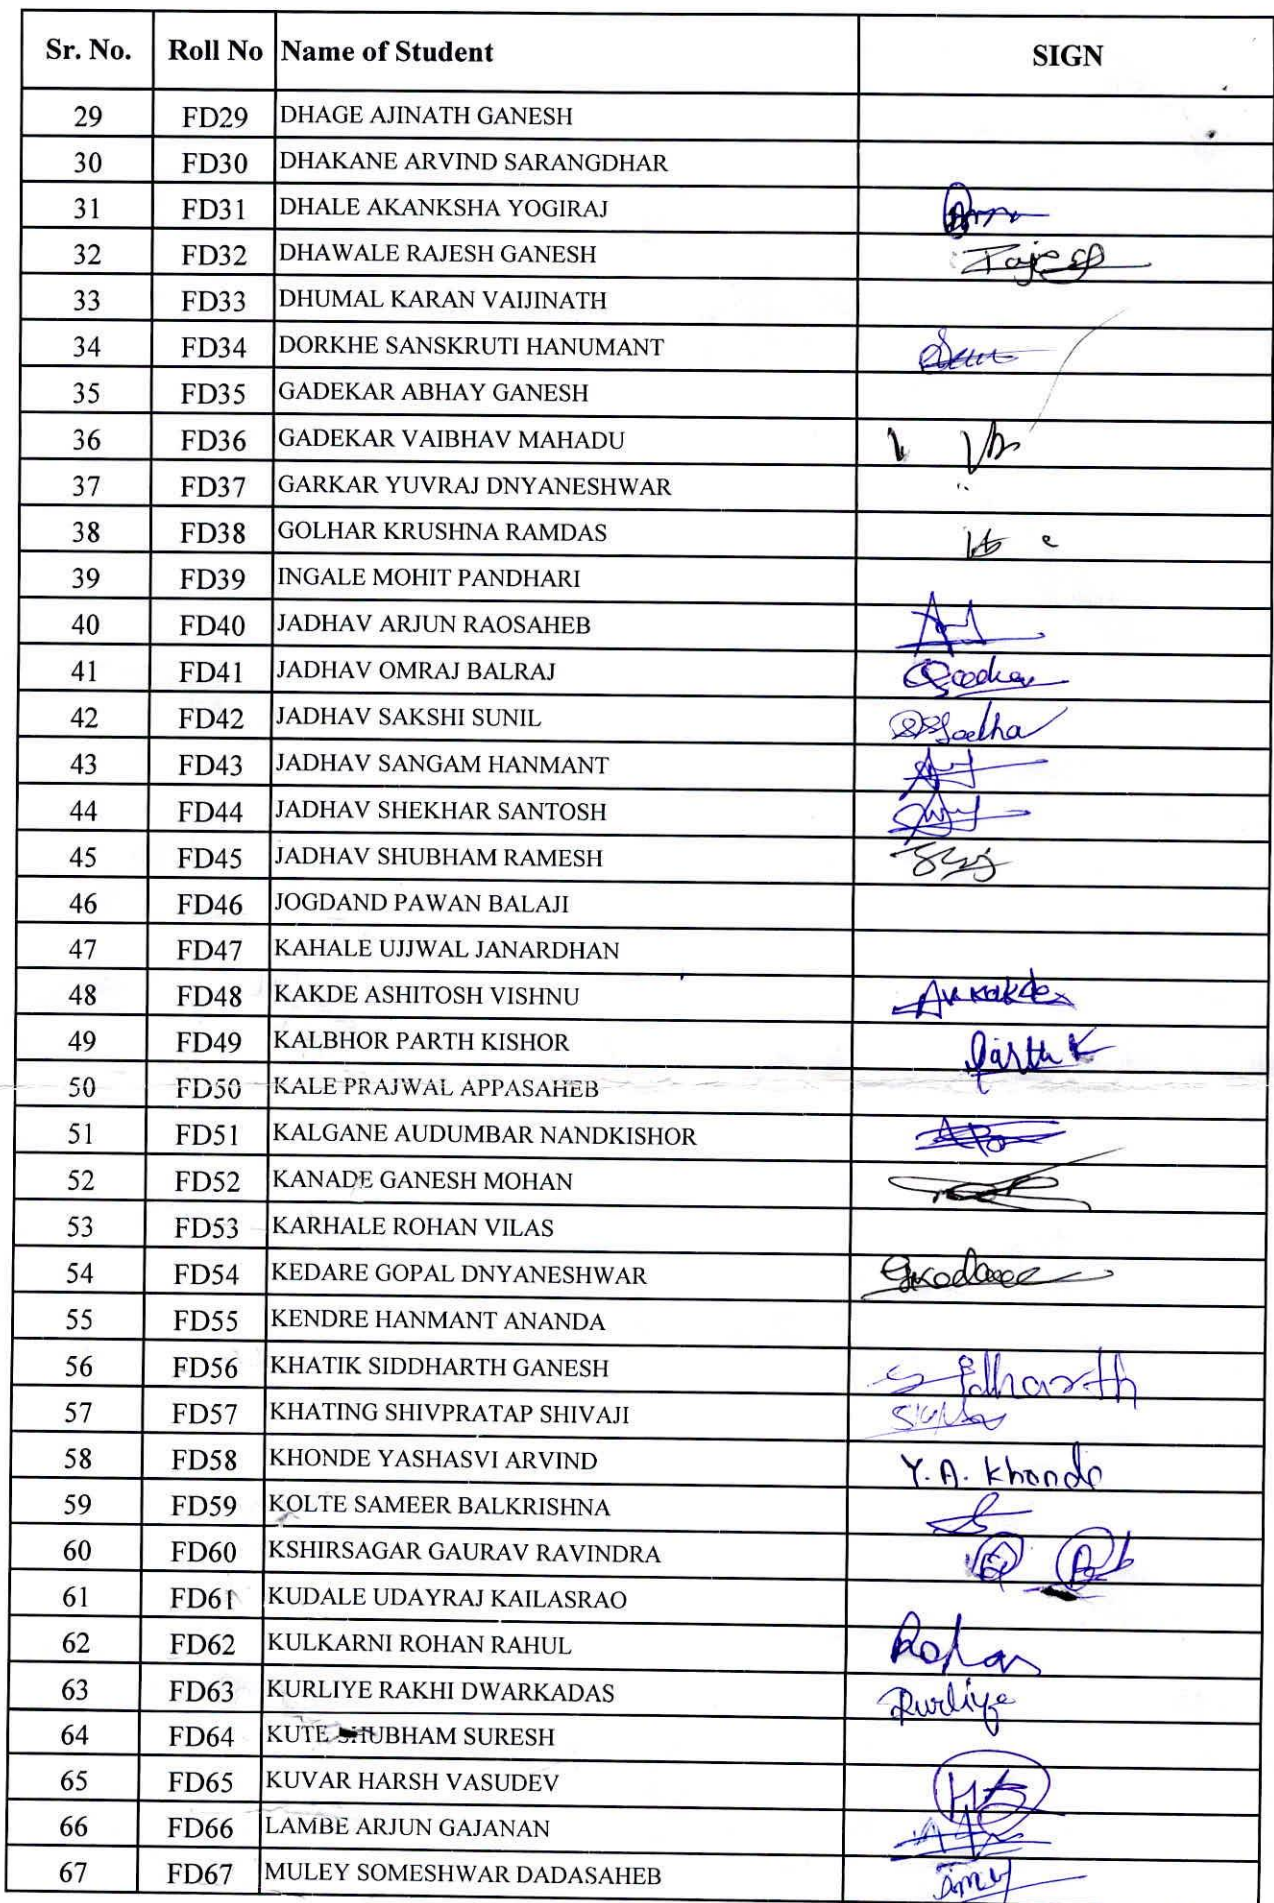 Sr. No. Roll No Name of Student SIGN
29 FD29 DHAGE AJINATH GANESH
30 FD30 DHAKANE ARVIND SARANGDHAR
31 FD31 DHALE AKANKSHA YOGIRAJ
32 FD32 DHAWALE RAJESH GANESH Rajesh
33 FD33 DHUMAL KARAN VAIJINATH
34 FD34 DORKHE SANSKRUTI HANUMANT
35 FD35 GADEKAR ABHAY GANESH
36 FD36 GADEKAR VAIBHAV MAHADU
37 FD37 GARKAR YUVRAJ DNYANESHWAR
38 FD38 GOLHAR KRUSHNA RAMDAS
39 FD39 INGALE MOHIT PANDHARI
40 FD40 JADHAV ARJUN RAOSAHEB
41 FD41 JADHAV OMRAJ BALRAJ
42 FD42 JADHAV SAKSHI SUNIL
43 FD43 JADHAV SANGAM HANMANT
44 FD44 JADHAV SHEKHAR SANTOSH
45 FD45 JADHAV SHUBHAM RAMESH
46 FD46 JOGDAND PAWAN BALAJI
47 FD47 KAHALE UJJWAL JANARDHAN
48 FD48 KAKDE ASHITOSH VISHNU AVKakde
49 FD49 KALBHOR PARTH KISHOR Parth K
50 FD50 KALE PRAJWAL APPASAHEB
51 FD51 KALGANE AUDUMBAR NANDKISHOR
52 FD52 KANADE GANESH MOHAN
53 FD53 KARHALE ROHAN VILAS
54 FD54 KEDARE GOPAL DNYANESHWAR
55 FD55 KENDRE HANMANT ANANDA
56 FD56 KHATIK SIDDHARTH GANESH
57 FD57 KHATING SHIVPRATAP SHIVAJI
58 FD58 KHONDE YASHASVI ARVIND Y.A. Khonde
59 FD59 KOLTE SAMEER BALKRISHNA
60 FD60 KSHIRSAGAR GAURAV RAVINDRA
61 FD61 KUDALE UDAYRAJ KAILASRAO
62 FD62 KULKARNI ROHAN RAHUL Rohan
63 FD63 KURLIYE RAKHI DWARKADAS Rurliye
64 FD64 KUTE SHUBHAM SURESH
65 FD65 KUVAR HARSH VASUDEV
66 FD66 LAMBE ARJUN GAJANAN
67 FD67 MULEY SOMESHWAR DADASAHEB